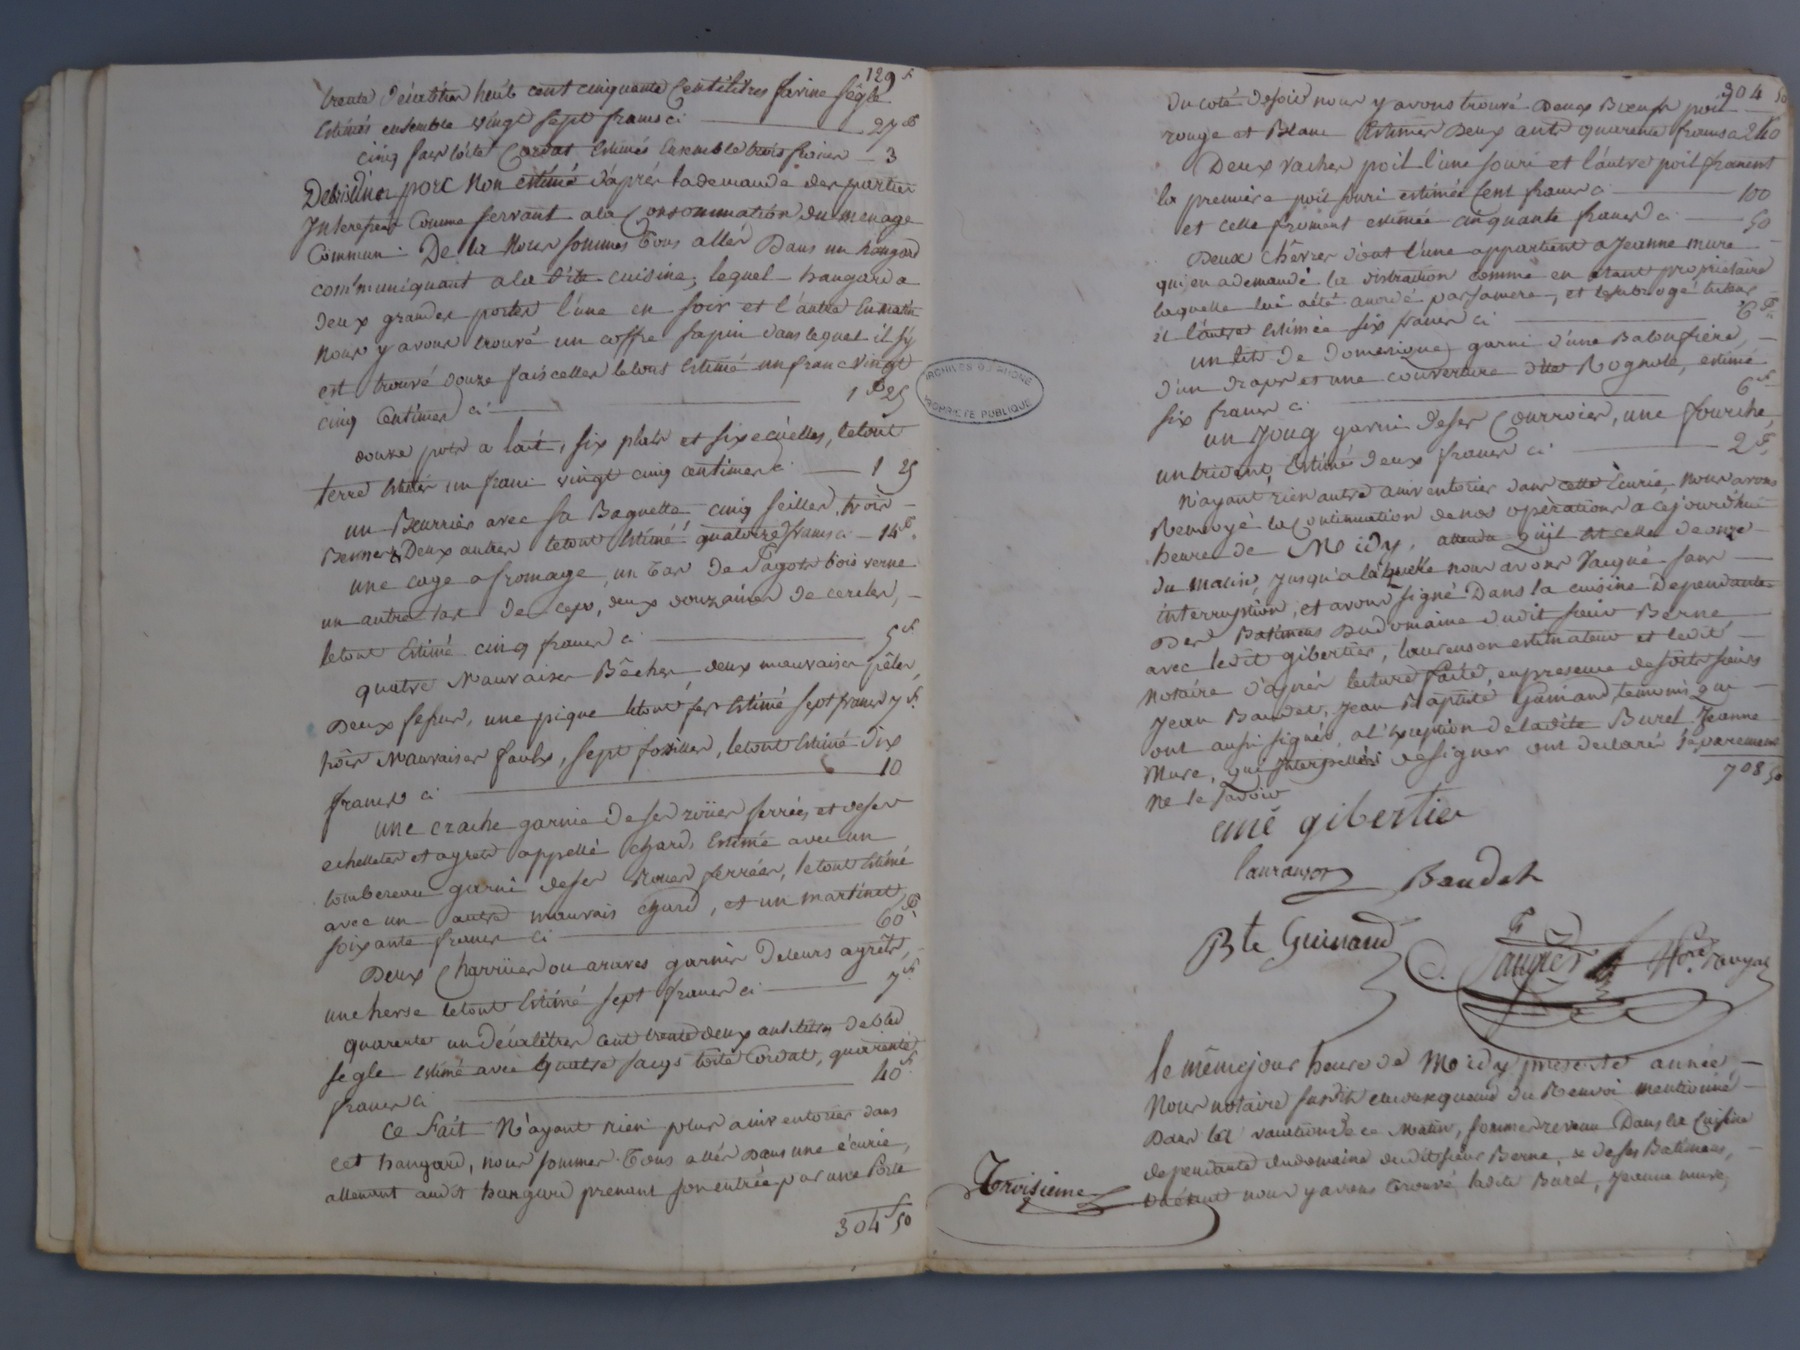 129 f
trente Décalitres huit cent cinquante Centilitres farine Ségle
Estimés ensemble vingt sept francs ci 27 f
cinq sacs toile Cordat Estimés Ensemble trois francs 3
porc Non estimé d'après la demande des parties
Interessées Comme servant a la Consommation du menage
Commun. De la Nous sommes Tous allés Dans un hangard
communiquant a la dite cuisine, lequel hangard a
deux grandes portes l'une en soir et l'autre En matin
Nous y avons trouvé un coffre sapin dans lequel il s'y
est trouvé douze faiscelles le tout Estimé un franc vingt
cinq Centimes ci 1 f 25
douze pots a lait, six plats et six ecuelles, le tout
terre Estimés un franc vingt cinq centimes ci 1 25
un Beurrier avec sa Baguette cinq seilles, trois
Bennes & Deux autres le tout Estimé quatorze francs ci 14 f
une cage a fromage, un Tas de fagots bois verne
un autre tas de ceps, deux douzaines de cercles,
le tout Estimé cinq francs ci 5 f
quatre Mauvaises Bêches deux mauvaises pêles,
Deux , une pique le tout fer Estimé sept francs 7 f
trois Mauvaises faulx, sept fossilles, le tout Estimé Dix
francs ci 10
une crache garnie de ses roües ferrées et de ses
echellettes et agrets appellé chard, Estimé avec un
tombereau garni de ses Roues ferrées, le tout Estimé
avec un autre mauvais chard, et un martinet
soixante francs ci 60 f
Deux Charrües ou araires garnies De leurs agrêts,
une herse le tout Estimé sept francs ci 7 f
quarante un Décalitres cent trente deux De bled
segle estimé avec quatre sacqs toile Cordat, quarante
francs ci 40 f
Ce Fait N'ayant rien plus a inventorier dans
cet hangard, nous sommes Tous allés Dans une écurie,
attenant au dit hangard prenant son entrée par une Porte
304 f 50
304 50
Du coté de soir nous y avons trouvé Deux Bœufs poil
rouge et Blanc Estimés Deux cents quarante francs ci 240
Deux vaches poil l'une souri et l'autre poil froment
la première poil souri estimée Cent francs ci 100
et celle froment estimée cinquante francs ci 50
Deux Chêvres dont l'une appartient a Jeanne mure
qui en a demandé la distraction comme en etant propriétaire
laquelle lui a été accordé par sa mere, et le subrogé tuteur
et l'autre Estimée six francs ci 6 f
un lit de domestique garni d'une Balouffière,
d'un drap et une couverture dite Rognole, estimé
six francs ci 6 f
un Joug garni de ses Courroies, une fourche,
un trident, Estimé deux francs ci 2 f
N'ayant rien autre a inventorier dans cette Ecurie, nous avons
Renvoyé la Continuation de nos opérations a cejourd'hui
heure de Midy, attendu qu'il est celle de onze
du matin, jusqu'a laquelle nous avons Vacqué sans
interruption, et avons signé Dans la cuisine Dependante
Des Batimens Du domaine dudit sieur Berne
avec ledit gibertier, laurenson estimateur et ledit
notaire d'après lecture faite, en presence desdits sieurs
Jean Baudet, Jean Baptiste Guinand temoins qui
ont aussi signés, a l'Exception de ladite Burel Jeanne
Mure, qui Interpellées de signer ont declaré séparement
ne le savoir
708 50
aimé gibertier
lauranson Baudet
Bte Guinand
le même jour heure de Midy presente année,
Nous notaire susdit en consequence du Renvoi mentionné
Dans la vacation de ce Matin, sommes revenu Dans la Cuisine
dependante du domaine dudit sieur Berne, & de ses Batimens,
où étant nous y avons trouvé ladite Burel, Jeanne mure,
Troisieme
ARCHIVES DU RHONE
PROPRIETE PUBLIQUE